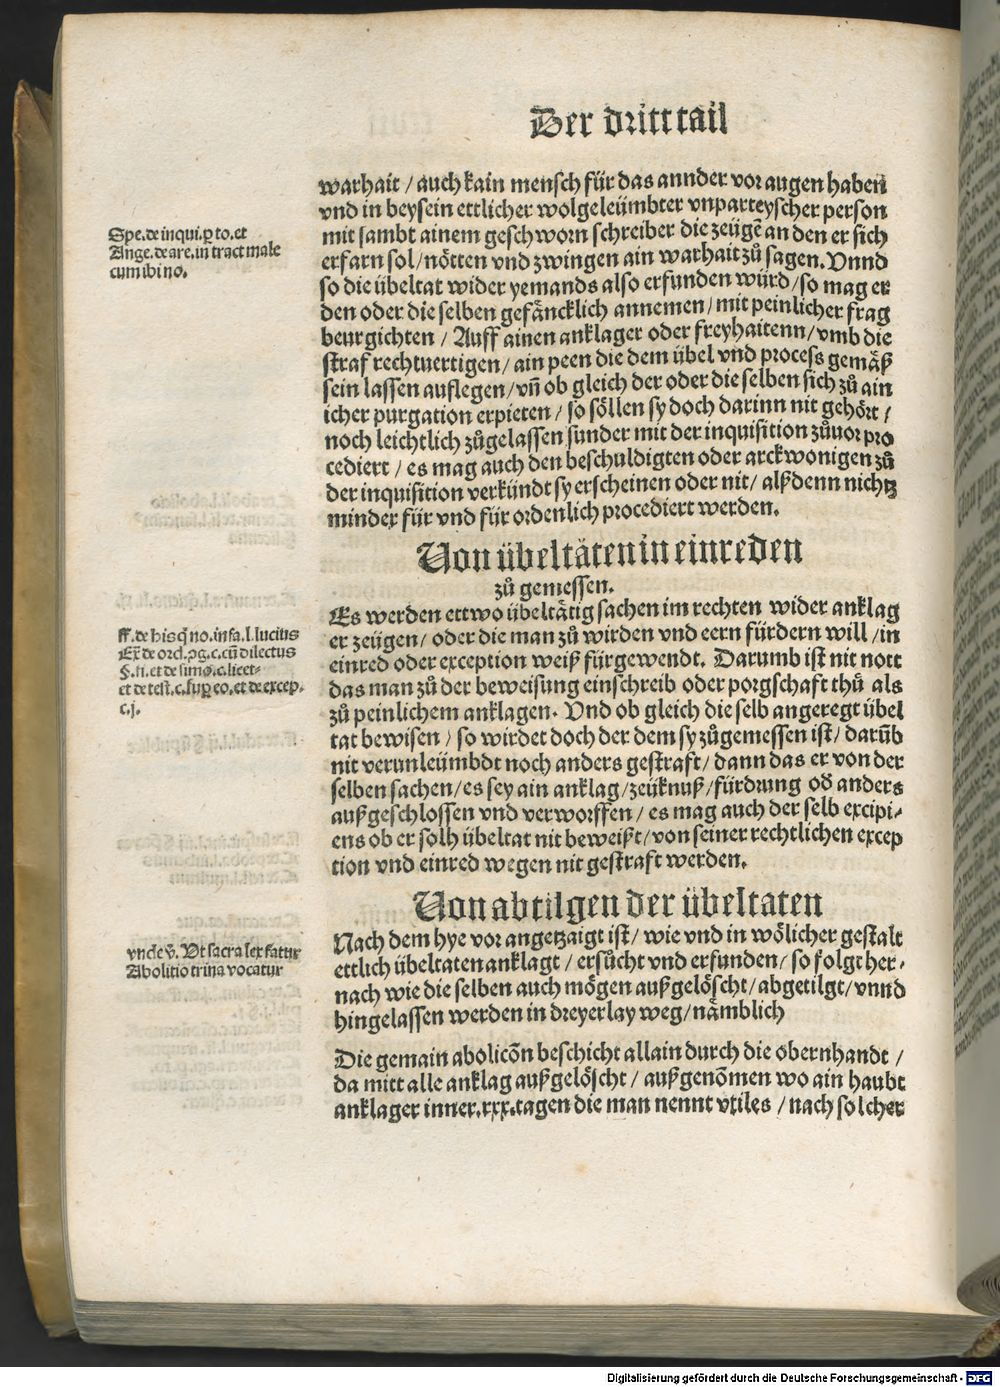 Der dritt tail
warhait / auch kain mensch für das annder vor augen haben
vnd in beysein ettlicher wolgeleümbter vnparteyscher person
mit sambt ainem geschworn schreiber die zeügē an den er sich
erfarn sol / nötten vnd zwingen ain warhait zů sagen. Vnnd
so die übeltat wider yemands also erfunden würd / so mag er
den oder die selben gefäncklich annemen / mit peinlicher frag
beurgichten / Auff ainen anklager oder freyhaitenn / vmb die
straf rechtuertigen / ain peen die dem übel vnd process gemäß
sein lassen auflegen / vn̄ ob gleich der oder die selben sich zů ain
icher purgation erpieten / so söllen sy doch darinn nit gehört /
noch leichtlich zůgelassen sunder mit der inquisition zůuor pro
cediert / es mag auch den beschuldigten oder arckwonigen zů
der inquisition verkündt sy erscheinen oder nit / alß denn nichtz
minder für vnd für ordenlich procediert werden.
Spe. de inqui. ꝑ to. et
Ange. de are. in tract male
cum ibi no.
Von übeltäten in einreden
zů gemessen.
Es werden ettwo übeltätig sachen im rechten wider anklag
er zeügen / oder die man zů wirden vnd eern fürdern will / in
einred oder exception weiß fürgewendt. Darumb ist nit nott
das man zů der beweisung einschreib oder porgschaft thů als
zů peinlichem anklagen. Vnd ob gleich die selb angeregt übel
tat bewisen / so wirdet doch der dem sy zůgemessen ist / darūb
nit verunleümbdt noch anders gestraft / dann das er von der
selben sachen / es sey ain anklag / zeüknuß / fürdrung oď anders
außgeschlossen vnd verworffen / es mag auch der selb excipi-
ens ob er solh übeltat nit beweißt / von seiner rechtlichen excep
tion vnd einred wegen nit gestraft werden.
ff. de his q̇ no. infa. l. lucius
Ex̄ de ord. ꝯg. c. cū dilectus
§. fi. et de simo. c. licet-
et de test. c. suꝑ eo. et de excep.
c. j.
Von abtilgen der übeltaten
Nach dem hye vor angetzaigt ist / wie vnd in wölicher gestalt
ettlich übeltaten anklagt / ersůcht vnd erfunden / so folgt her-
nach wie die selben auch mögen außgelöscht / abgetilgt / vnnd
hingelassen werden in dreyerlay weg / nämblich
vnde v̄. Vt sacra lex fatur
Abolitio trina vocatur
Die gemain abolicōn beschicht allain durch die obernhandt /
da mitt alle anklag außgelöscht / außgenōmen wo ain haubt
anklager inner .xxx. tagen die man nennt vtiles / nach solcher
Digitalisierung gefördert durch die Deutsche Forschungsgemeinschaft - DFG